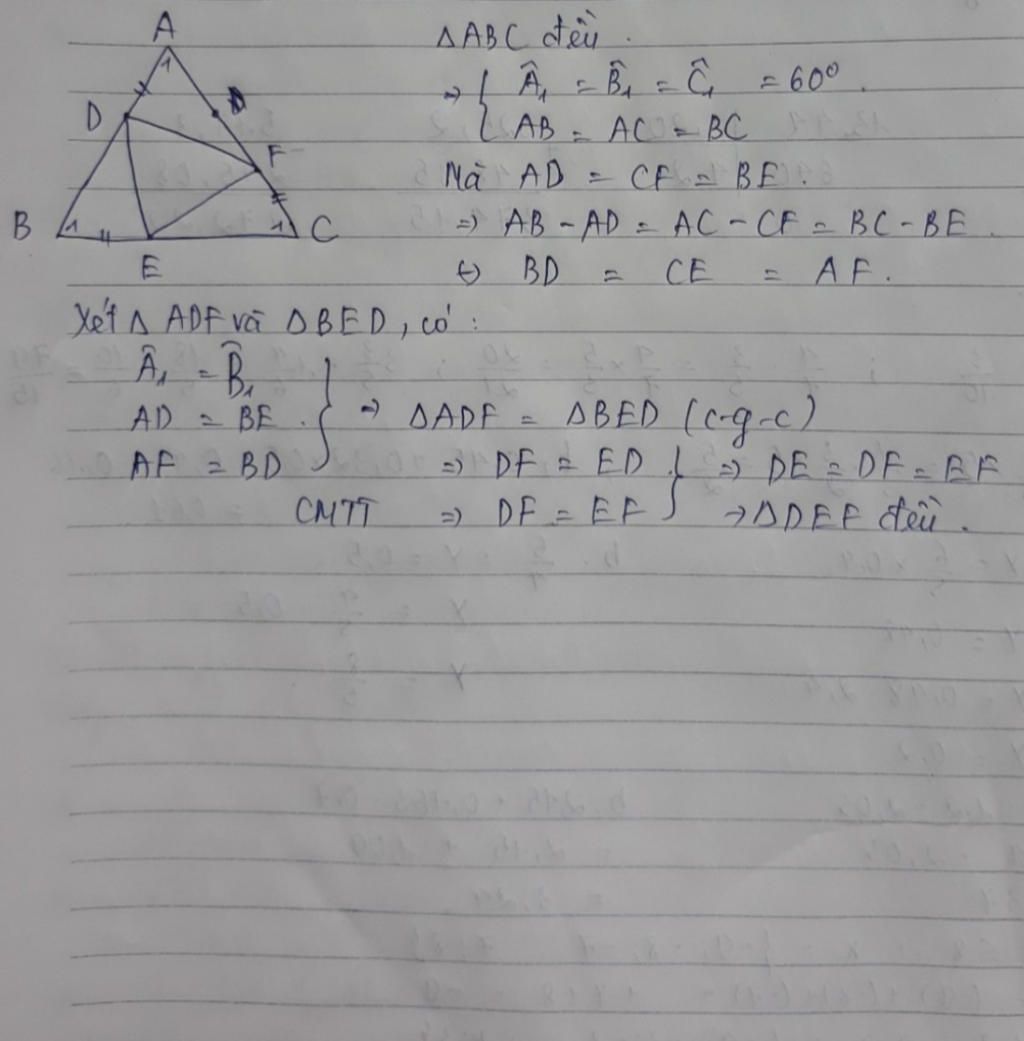 A
1
D
F
B
1
1
C
E
ΔABC đều.
⇒ { Â₁ = B̂₁ = Ĉ₁ = 60°.
AB = AC = BC
Mà AD = CF = BE.
⇒ AB - AD = AC - CF = BC - BE.
⇔ BD = CE = AF.
Xét Δ ADF và ΔBED, có:
Â₁ = B̂₁
AD = BE. } ⇒ ΔADF = ΔBED (c-g-c)
AF = BD ⇒ DF = ED } ⇒ DE = DF = EF
CMTT ⇒ DF = EF → ΔDEF đều.